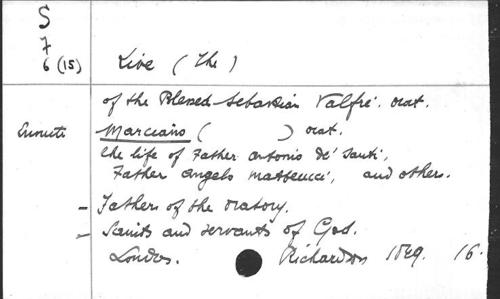 S
7
6 (15) Live (The)
of the Blessed Sebastian Valfré. orat.
Marciano ( ) orat.
the life of Father Antonio de' Santi,
Father Angelo Matteucci, and others.
- Fathers of the Oratory.
- Saints and servants of God.
London. Richardson 1849. 16.